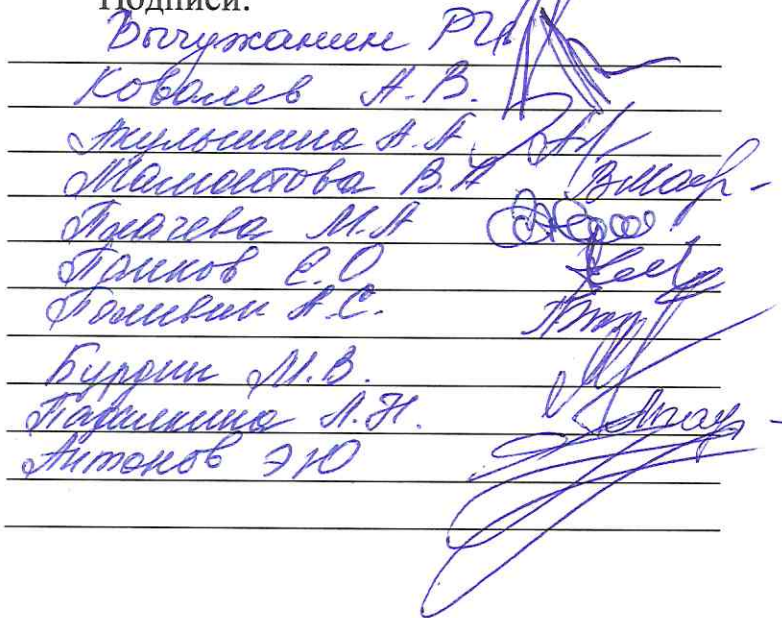 Подписи:
Вычужанин Р.И.
Ковалев А.В.
Акульшина А.А.
Мамонтова В.А
Ткачева М.А
Панков Е.О
Поливин А.С.
Бурдин М.В.
Падалкина Л.Н.
Антонов ЭЮ